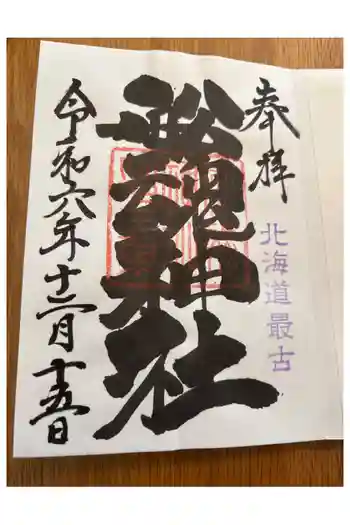 奉拝
北海道最古
舩魂神社
令和六年十二月十五日